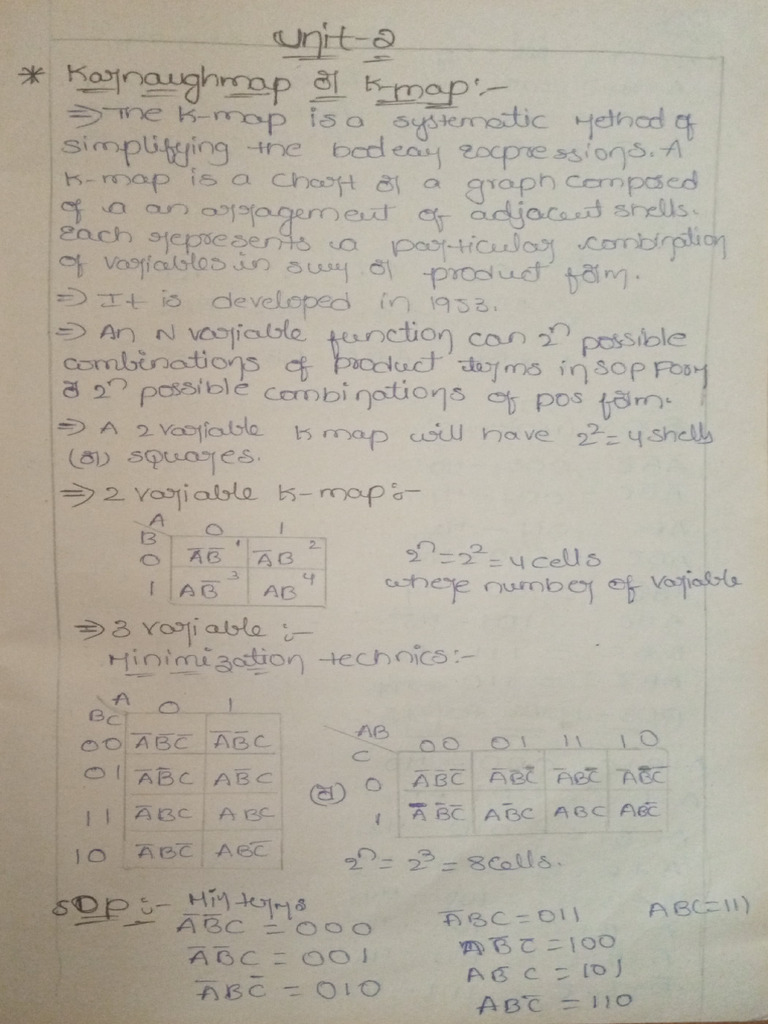 Unit-2
* Karnaughmap or K-map:-
⇒ The K-map is a systematic Method of
simplifying the boolean expressions. A
K-map is a chart or a graph composed
of a an arragement of adjacent shells.
each represents a particular combination
of variables in sum or product form.
⇒ It is developed in 1953.
⇒ An N variable function can 2ⁿ possible
combinations of product terms in SOP Form
or 2ⁿ possible combinations of pos form.
⇒ A 2 variable K map will have 2²=4 shells
(or) squares.
⇒ 2 variable K-map:-
A 0 1
B
0 A̅B̅ 1 A̅B 2
1 AB̅ 3 AB 4
2ⁿ=2²=4 cells
where number of variable
⇒ 3 variable :-
Minimization technics:-
A 0 1
BC
00 A̅B̅C̅ A̅B̅C
01 A̅B̅C AB̅C
11 A̅BC ABC
10 A̅BC̅ ABC̅
(or)
AB 00 01 11 10
C
0 A̅B̅C̅ A̅BC̅ ABC̅ AB̅C̅
1 A̅B̅C̅ AB̅C ABC ABC̅
2ⁿ = 2³ = 8 cells.
SOP :- Min terms
A̅B̅C = 000
A̅B̅C = 001
A̅BC̅ = 010
A̅BC = 011
AB̅C̅ = 100
AB̅C = 101
ABC̅ = 110
ABC=111